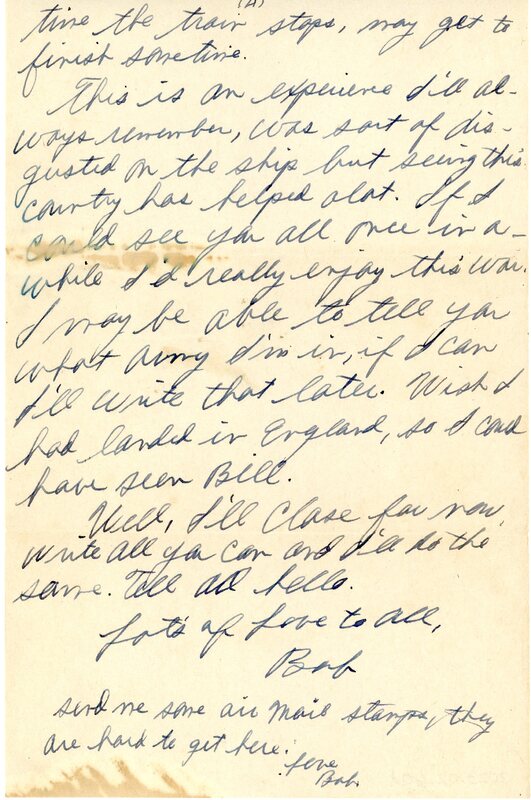 (4)
time the train stops, may get to
finish sometime.
This is an experience I'll al-
ways remember, was sort of dis-
gusted on the ship but seeing this
country has helped alot. If I
could see you all once in a-
while I'd really enjoy this war.
I may be able to tell you
what army I'm in, if I can
I'll write that later. Wish I
had landed in England, so I could
have seen Bill.
Well, I'll close for now,
write all you can and I'll do the
same. Tell all hello.
Lots of Love to all,
Bob
send me some air mail stamps, they
are hard to get here.
Love
Bob